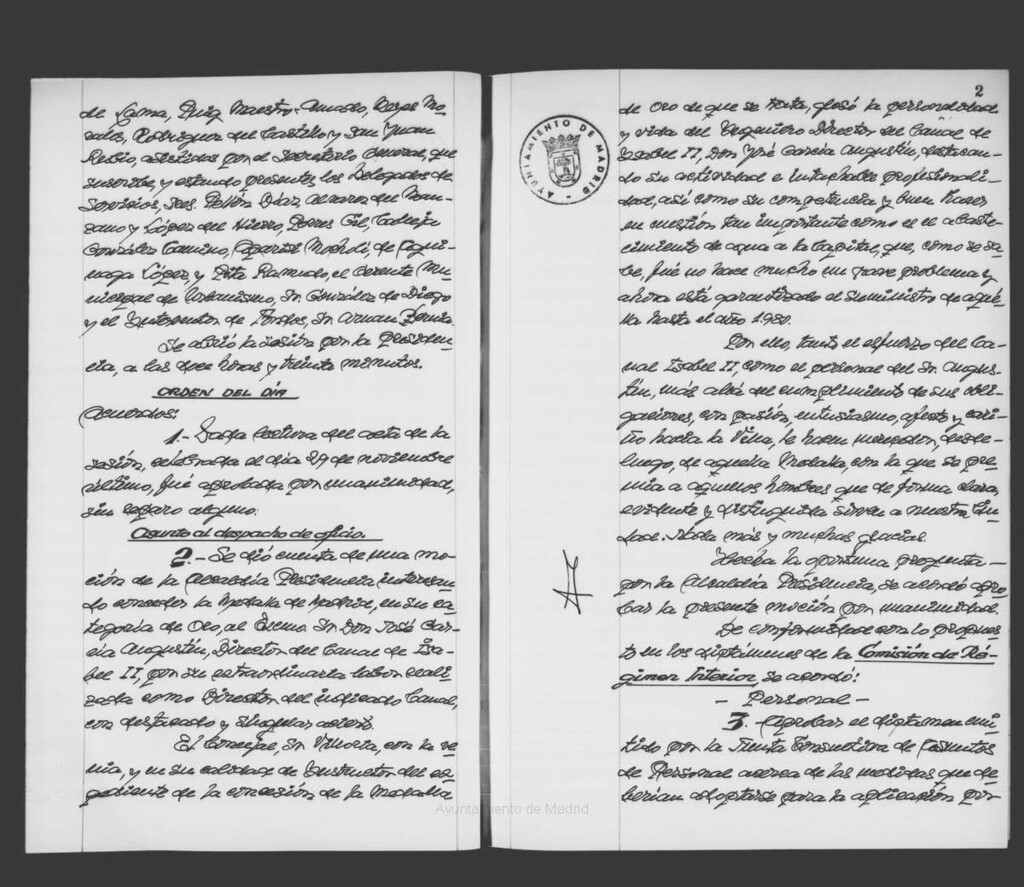 de Lama, Puig Maestro-Amado, Reyes Mo-
rales, Rodríguez del Castillo y San Juan
Rubio, asistidos por el Secretario General, que
suscribe, y estando presentes los Delegados de
Servicios, Sres. Pellón Díaz, Álvarez del Man-
zano y López del Hierro, Pérez Gil, Calleja
González Camino, Aparisi Mocholí, de Agui-
naga López, y Pita Ramudo, el Gerente Mu-
nicipal de Urbanismo, Sr. González de Diego
y el Interventor de Fondos, Sr. Arnau
Se abrió la sesión por la Presiden-
cia, a las doce horas y treinta minutos.
ORDEN DEL DÍA
Acuerdos:
1.- Dada lectura del acta de la
sesión, celebrada el día 29 de noviembre
último, fué aprobada por unanimidad,
sin reparo alguno.
Asunto al despacho de oficio.
2.- Se dió cuenta de una mo-
ción de la Alcaldía Presidencia interesan-
do conceder la Medalla de Madrid, en su ca-
tegoría de Oro, al Excmo. Sr. Don José Gar-
cía Augustín, Director del Canal de Isa-
bel II, por su extraordinaria labor reali-
zada como Director del indicado Canal,
con destacado y singular acierto.
El Concejal, Sr. Villoria, con la ve-
nia, y en su calidad de Instructor del ex-
pediente de la concesión de la Medalla
2
AYUNTAMIENTO DE MADRID
de Oro de que se trata, glosó la personalidad
y vida del Ingeniero Director del Canal de
Isabel II, Don José García Augustín, destacan-
do su actividad e intachable profesionali-
dad, así como su competencia y buen hacer
en cuestión tan importante como es el abaste-
cimiento de agua a la Capital, que, como se sa-
be, fué no hace mucho un grave problema y
ahora está garantizado el suministro de aqué-
lla hasta el año 1.980.
Por ello, tanto el esfuerzo del Ca-
nal Isabel II, como el personal del Sr. Augus-
tín, más allá del cumplimiento de sus obli-
gaciones, con pasión, entusiasmo, afecto y cari-
ño hacia la Villa, le hacen merecedor, desde
luego, de aquella Medalla, con la que se pre-
mia a aquellos hombres que de forma clara,
evidente y distinguida sirven a nuestra Ciu-
dad. Nada más y muchas gracias.
Hecha la oportuna pregunta
por la Alcaldía Presidencia, se acordó apro-
bar la presente moción por unanimidad.
De conformidad con lo propues-
to en los dictámenes de la Comisión de Ré-
gimen Interior, se acordó:
- Personal -
3.- Aprobar el dictamen emi-
tido por la Junta Consultiva de Asuntos
de Personal acerca de las medidas que de-
berían adoptarse para la aplicación por
Ayuntamiento de Madrid